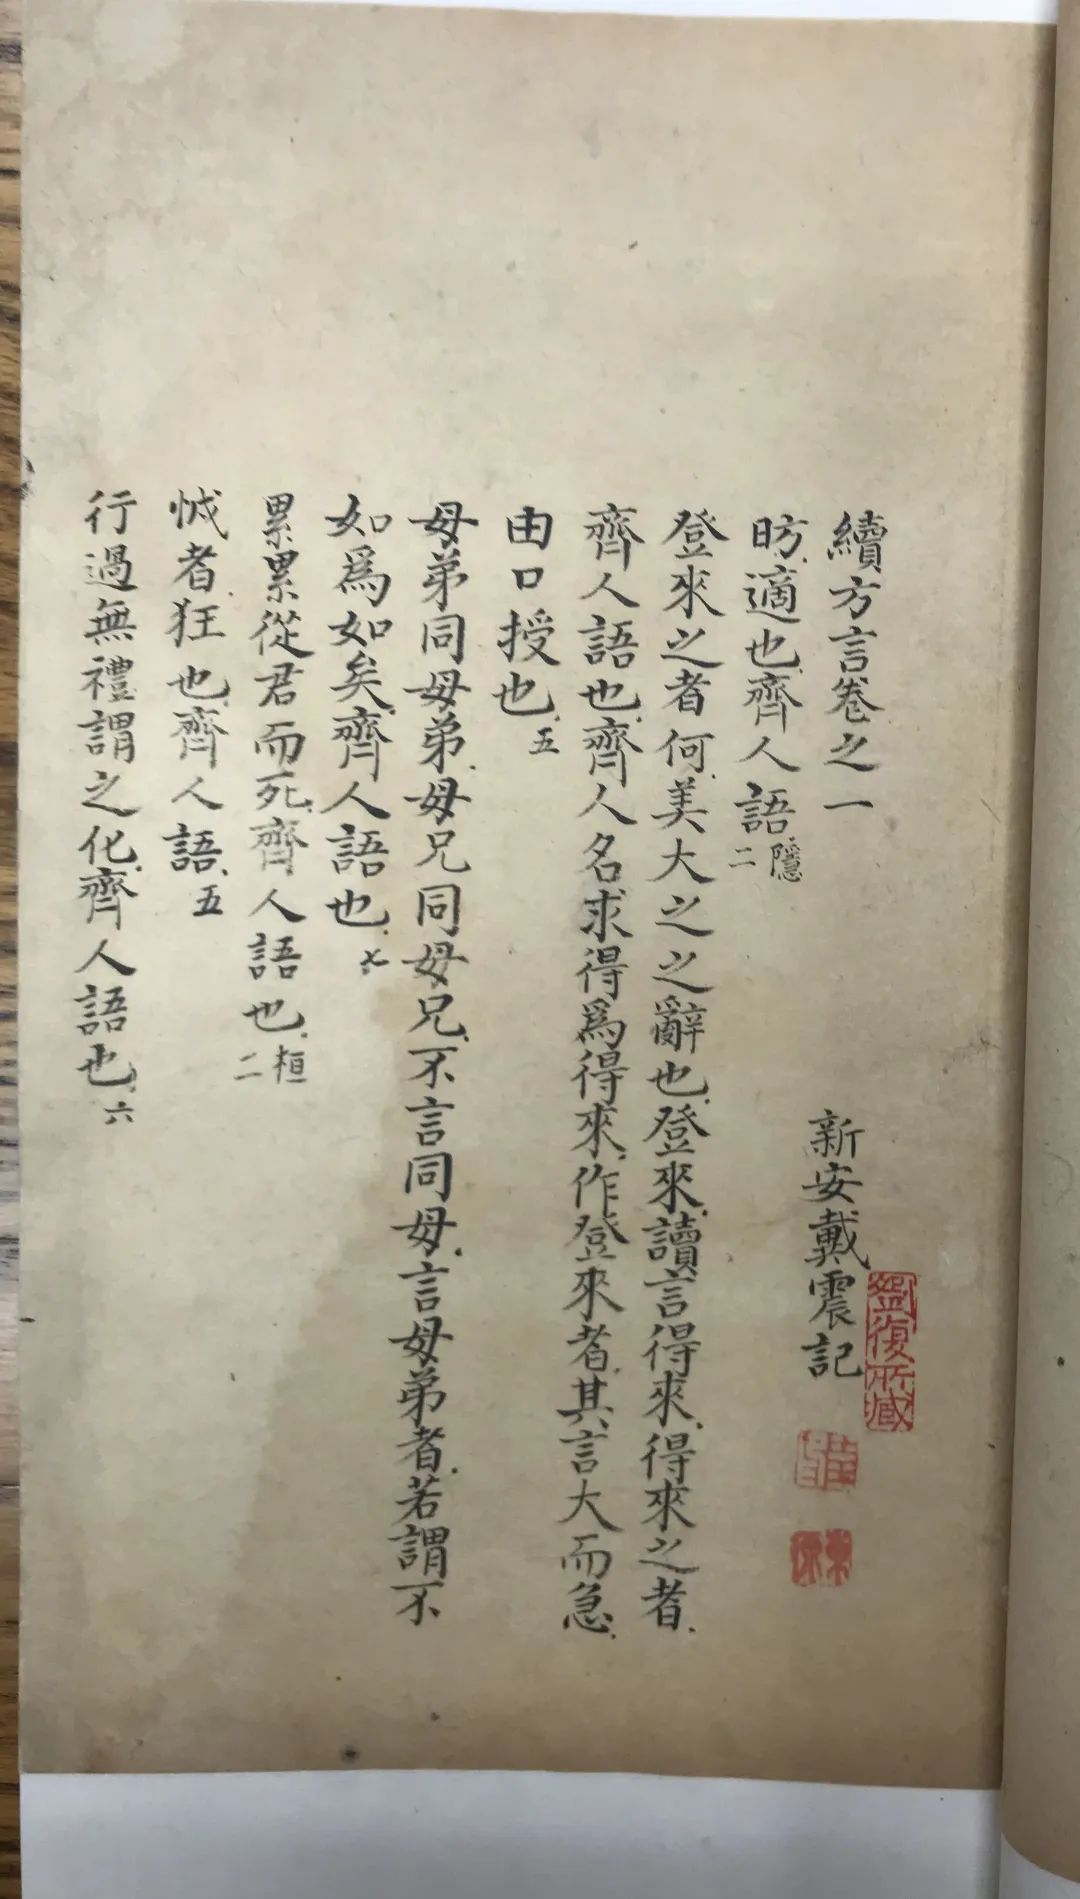 續方言卷之一
新安戴震記
劉復所藏
昉適也齊人語隱二
登來之者何美大之之辭也登來讀言得來得來之者
齊人語也齊人名求得爲得來作登來者其言大而急
由口授也五
母弟同母弟母兄同母兄不言同母言母弟者若謂不
如爲如矣齊人語也七
累累從君而死齊人語也桓二
怴者狂也齊人語五
行過無禮謂之化齊人語也六